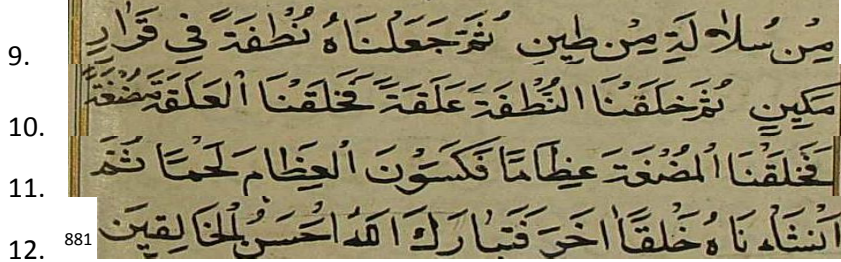 9. مِنْ سُلَالَةٍ مِنْ طِينٍ ثُمَّ جَعَلْنَاهُ نُطْفَةً فِي قَرَارٍ
10. مَكِينٍ ثُمَّ خَلَقْنَا النُّطْفَةَ عَلَقَةً فَخَلَقْنَا الْعَلَقَةَ مُضْغَةً
11. فَخَلَقْنَا الْمُضْغَةَ عِظَامًا فَكَسَوْنَ الْعِظَامَ لَحْمًا ثُمَّ
12. 881 اَنْشَاءْنَاهُ خَلْقًا اٰخَرَ فَتَبَارَكَ اللهُ احْسَنُ الْخَالِقِينَ